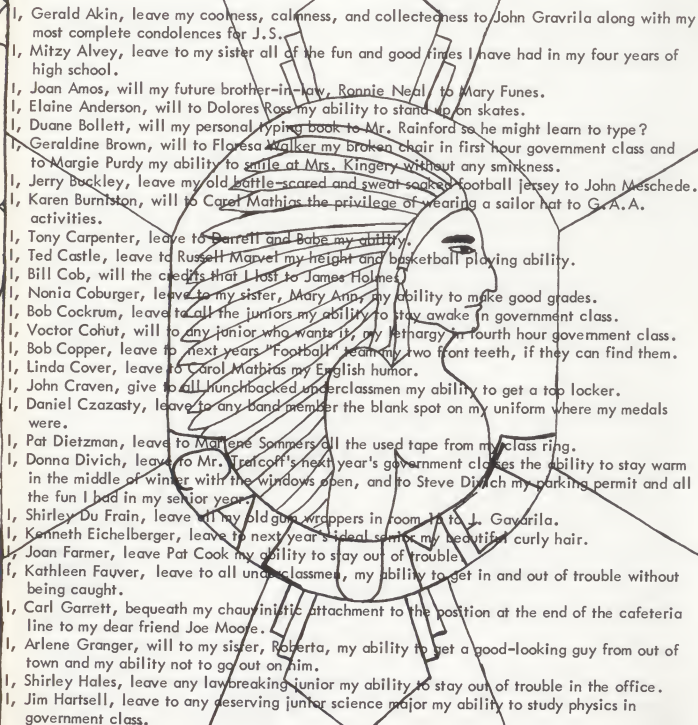 I, Gerald Akin, leave my coolness, calmness, and collectedness to John Gravrila along with my
most complete condolences for J.S.
I, Mitzy Alvey, leave to my sister all of the fun and good times I have had in my four years of
high school.
I, Joan Amos, will my future brother-in-law, Ronnie Neal, to Mary Funes.
I, Elaine Anderson, will to Dolores Ross my ability to stand up on skates.
I, Duane Bollett, will my personal typing book to Mr. Rainford so he might learn to type?
I, Geraldine Brown, will to Floresa Walker my broken chair in first hour government class and
to Margie Purdy my ability to smile at Mrs. Kingery without any smirkness.
I, Jerry Buckley, leave my old battle-scared and sweat soaked football jersey to John Meschede.
I, Karen Burniston, will to Carol Mathias the privilege of wearing a sailor hat to G.A.A.
activities.
I, Tony Carpenter, leave to Darrell and Babe my ability.
I, Ted Castle, leave to Russell Marvel my height and basketball playing ability.
I, Bill Cob, will the credits that I lost to James Holmes.
I, Nonia Coburger, leave to my sister, Mary Ann, my ability to make good grades.
I, Bob Cockrum, leave to all the juniors my ability to stay awake in government class.
I, Voctor Cohut, will to any junior who wants it, my lethargy in fourth hour government class.
I, Bob Copper, leave to next years "Football" team my two front teeth, if they can find them.
I, Linda Cover, leave to Carol Mathias my English humor.
I, John Craven, give to all hunchbacked underclassmen my ability to get a top locker.
I, Daniel Czazasty, leave to any band member the blank spot on my uniform where my medals
were.
I, Pat Dietzman, leave to Marlene Sommers all the used tape from my class ring.
I, Donna Divich, leave to Mr. Tralcoff's next year's government classes the ability to stay warm
in the middle of winter with the windows open, and to Steve Divich my parking permit and all
the fun I had in my senior year.
I, Shirley Du Frain, leave all my old gum wrappers in room 16 to J. Gavarila.
I, Kenneth Eichelberger, leave to next year's ideal senior my beautiful curly hair.
I, Joan Farmer, leave Pat Cook my ability to stay out of trouble.
I, Kathleen Fauver, leave to all underclassmen, my ability to get in and out of trouble without
being caught.
I, Carl Garrett, bequeath my chauvinistic attachment to the position at the end of the cafeteria
line to my dear friend Joe Moore.
I, Arlene Granger, will to my sister, Roberta, my ability to get a good-looking guy from out of
town and my ability not to go out on him.
I, Shirley Hales, leave any lawbreaking junior my ability to stay out of trouble in the office.
I, Jim Hartsell, leave to any deserving junior science major my ability to study physics in
government class.